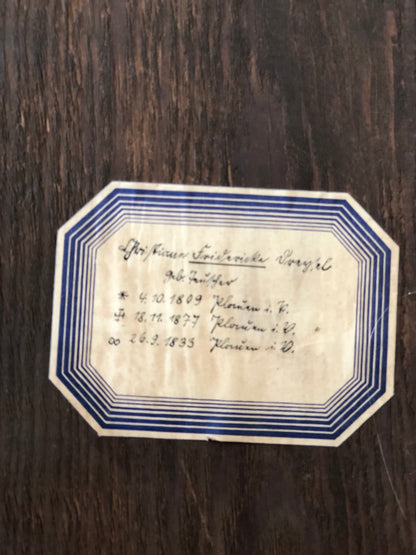 Christiane Fridericke Dreysel
geb. Teuscher
* 4.10.1809 Plauen i. V.
✝ 18.11.1877 Plauen i. V. "
∞ 26.9.1833 Plauen i. V.